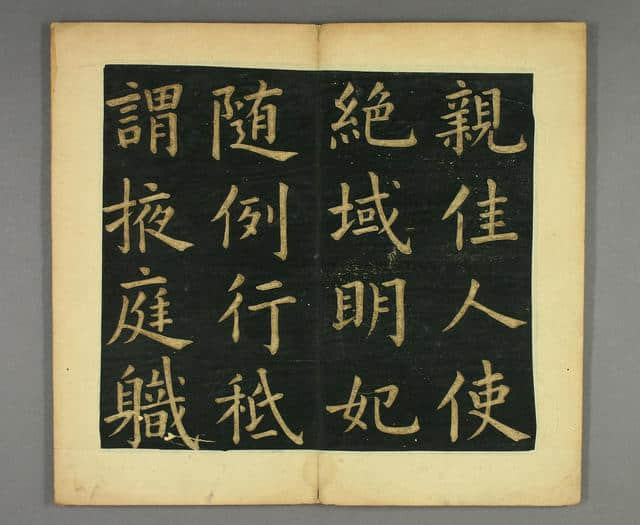 親佳人使
絶域明妃
随例行秖
謂掖庭軄